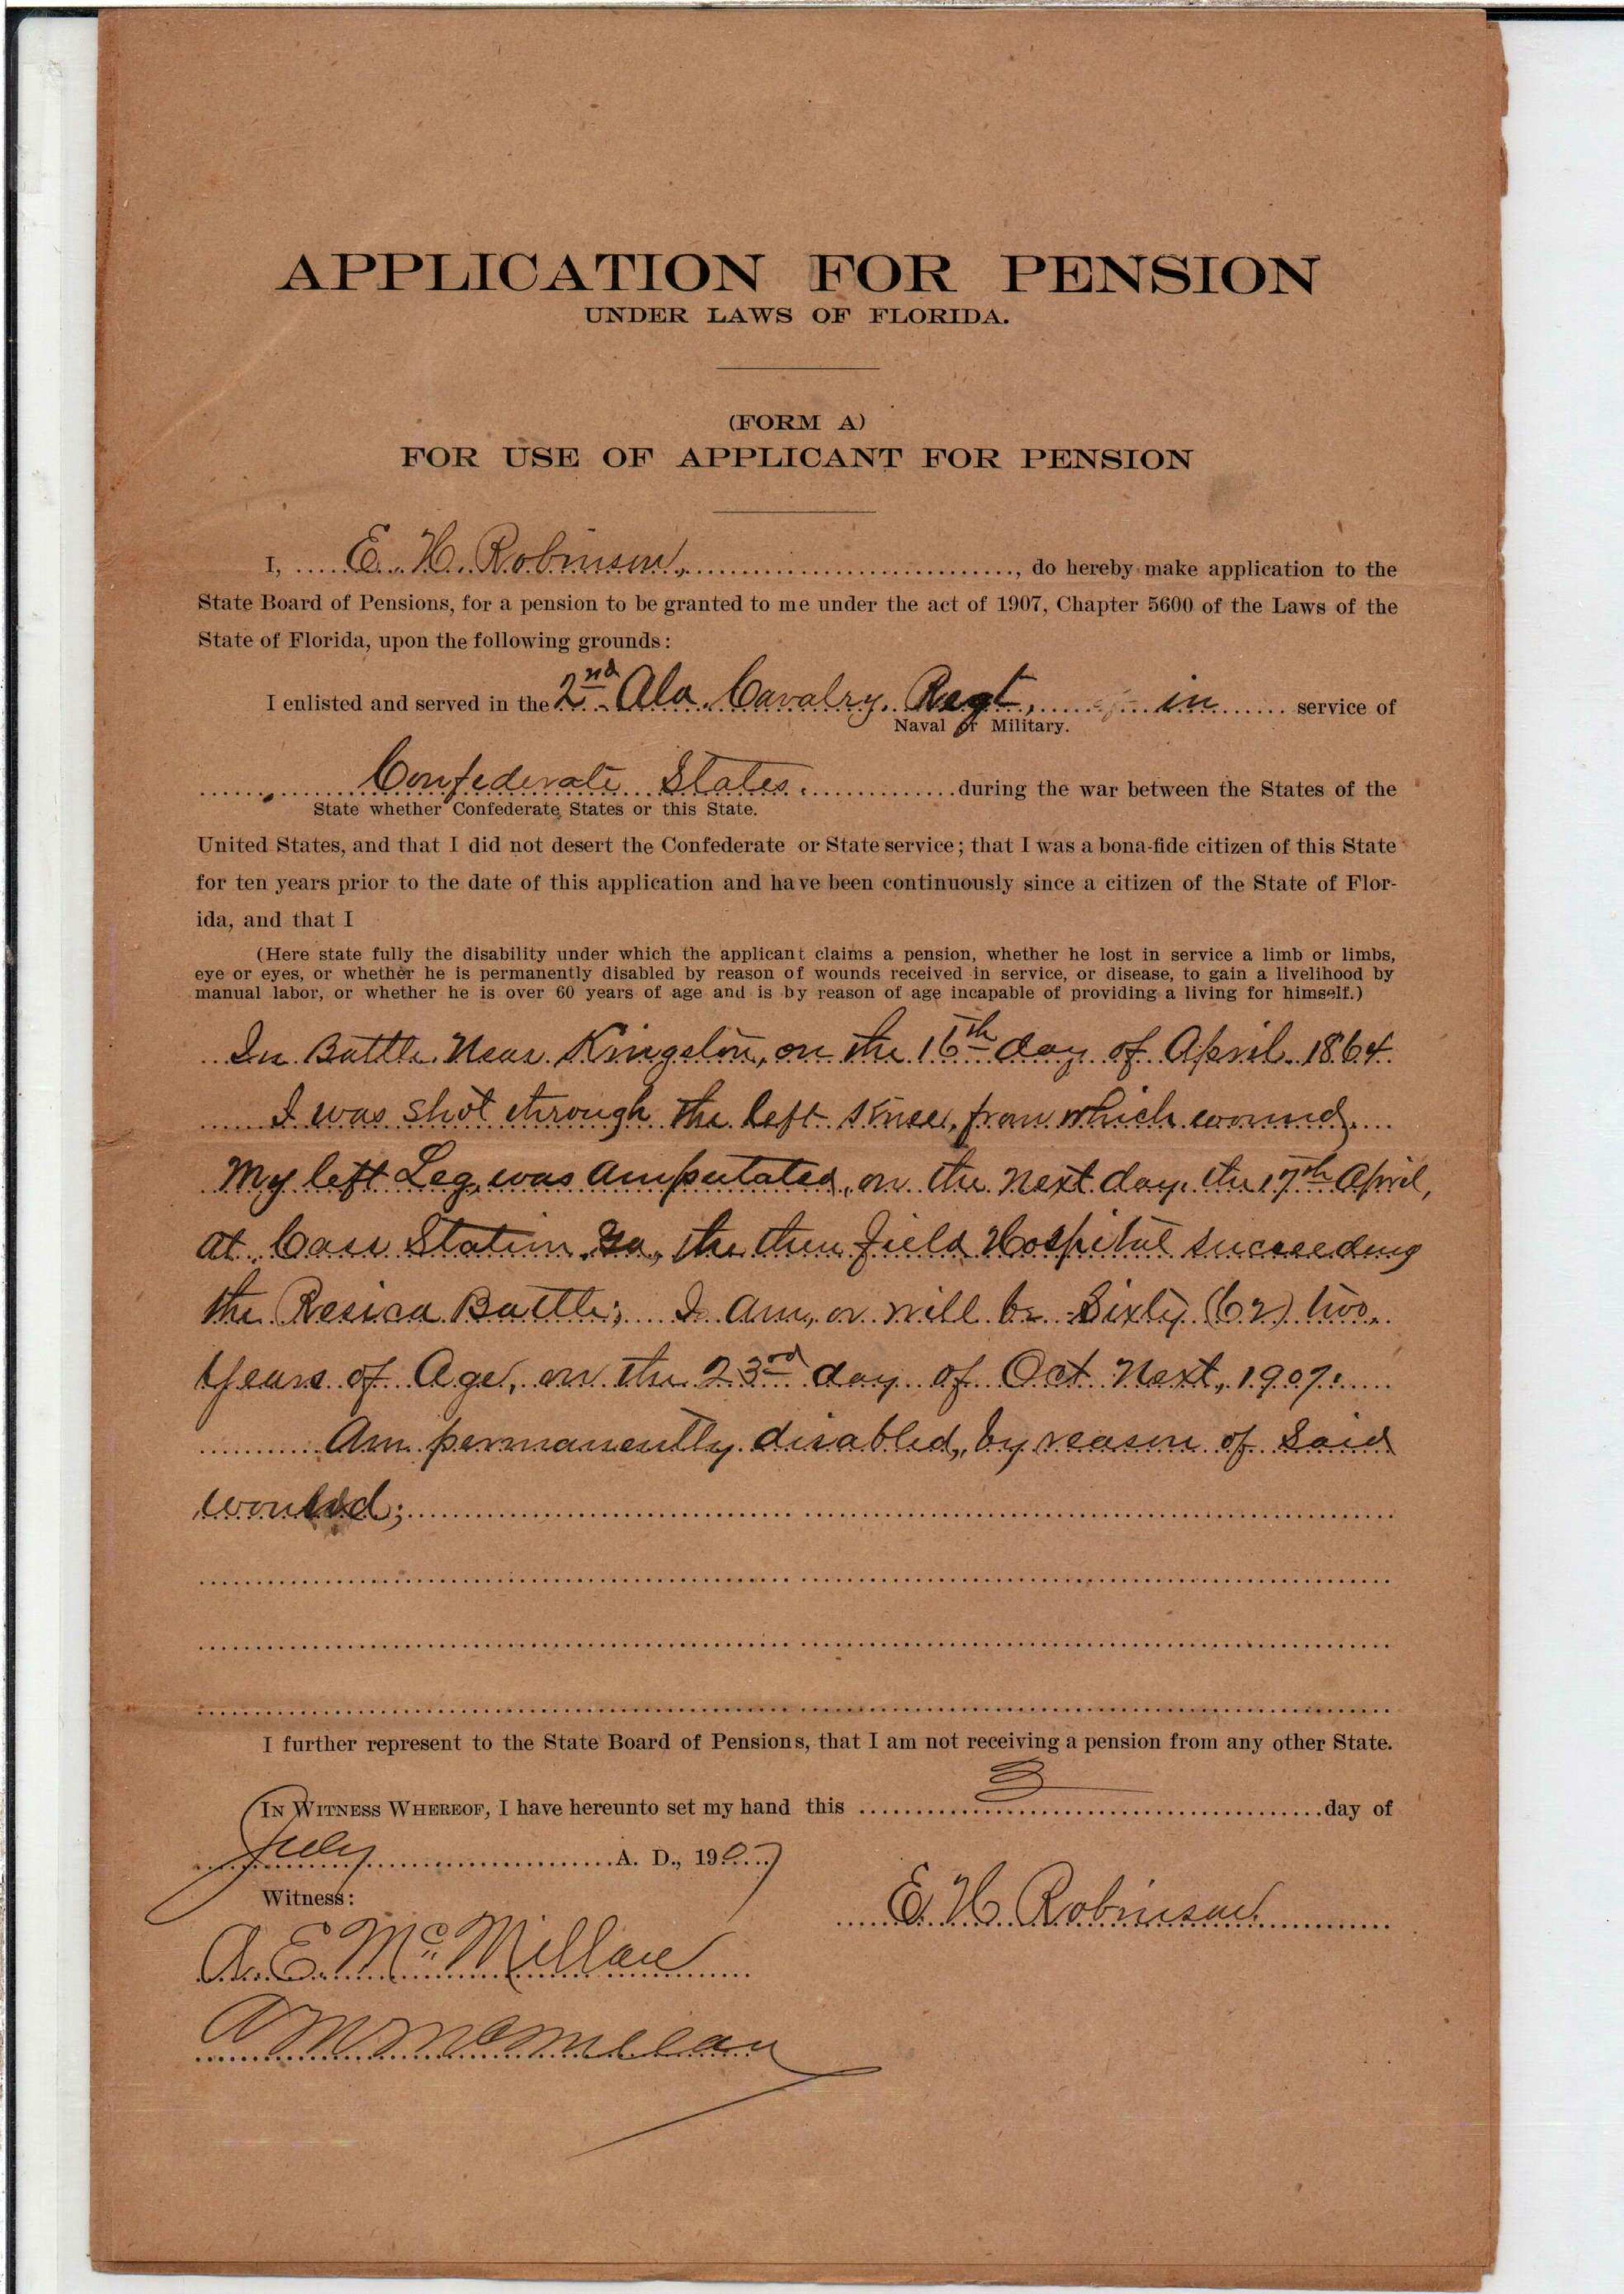 APPLICATION FOR PENSION
UNDER LAWS OF FLORIDA.
(FORM A)
FOR USE OF APPLICANT FOR PENSION
I, E. H. Robinson, , do hereby make application to the
State Board of Pensions, for a pension to be granted to me under the act of 1907, Chapter 5600 of the Laws of the
State of Florida, upon the following grounds:
I enlisted and served in the 2nd Ala. Cavalry. Regt. in service of
Naval or Military.
Confederate States. during the war between the States of the
State whether Confederate States or this State.
United States, and that I did not desert the Confederate or State service; that I was a bona-fide citizen of this State
for ten years prior to the date of this application and have been continuously since a citizen of the State of Flor-
ida, and that I
(Here state fully the disability under which the applicant claims a pension, whether he lost in service a limb or limbs,
eye or eyes, or whether he is permanently disabled by reason of wounds received in service, or disease, to gain a livelihood by
manual labor, or whether he is over 60 years of age and is by reason of age incapable of providing a living for himself.)
In Battle Near Kingston, on the 16th day of April 1864.
I was shot through the left Knee, from which wound,
My left Leg, was amputated, on the next day, the 17th April,
at Cass Station, Ga, the then field Hospital succeeding
the Resica Battle; I am, or will be Sixty (62) two
Years of Age, on the 23rd day of Oct. Next, 1907.
Am permanently disabled, by reason of Said
wound;
I further represent to the State Board of Pensions, that I am not receiving a pension from any other State.
IN WITNESS WHEREOF, I have hereunto set my hand this 3 day of
July A. D., 1907
Witness:
E. H. Robinson
A. E. McMillan
A M McMillan